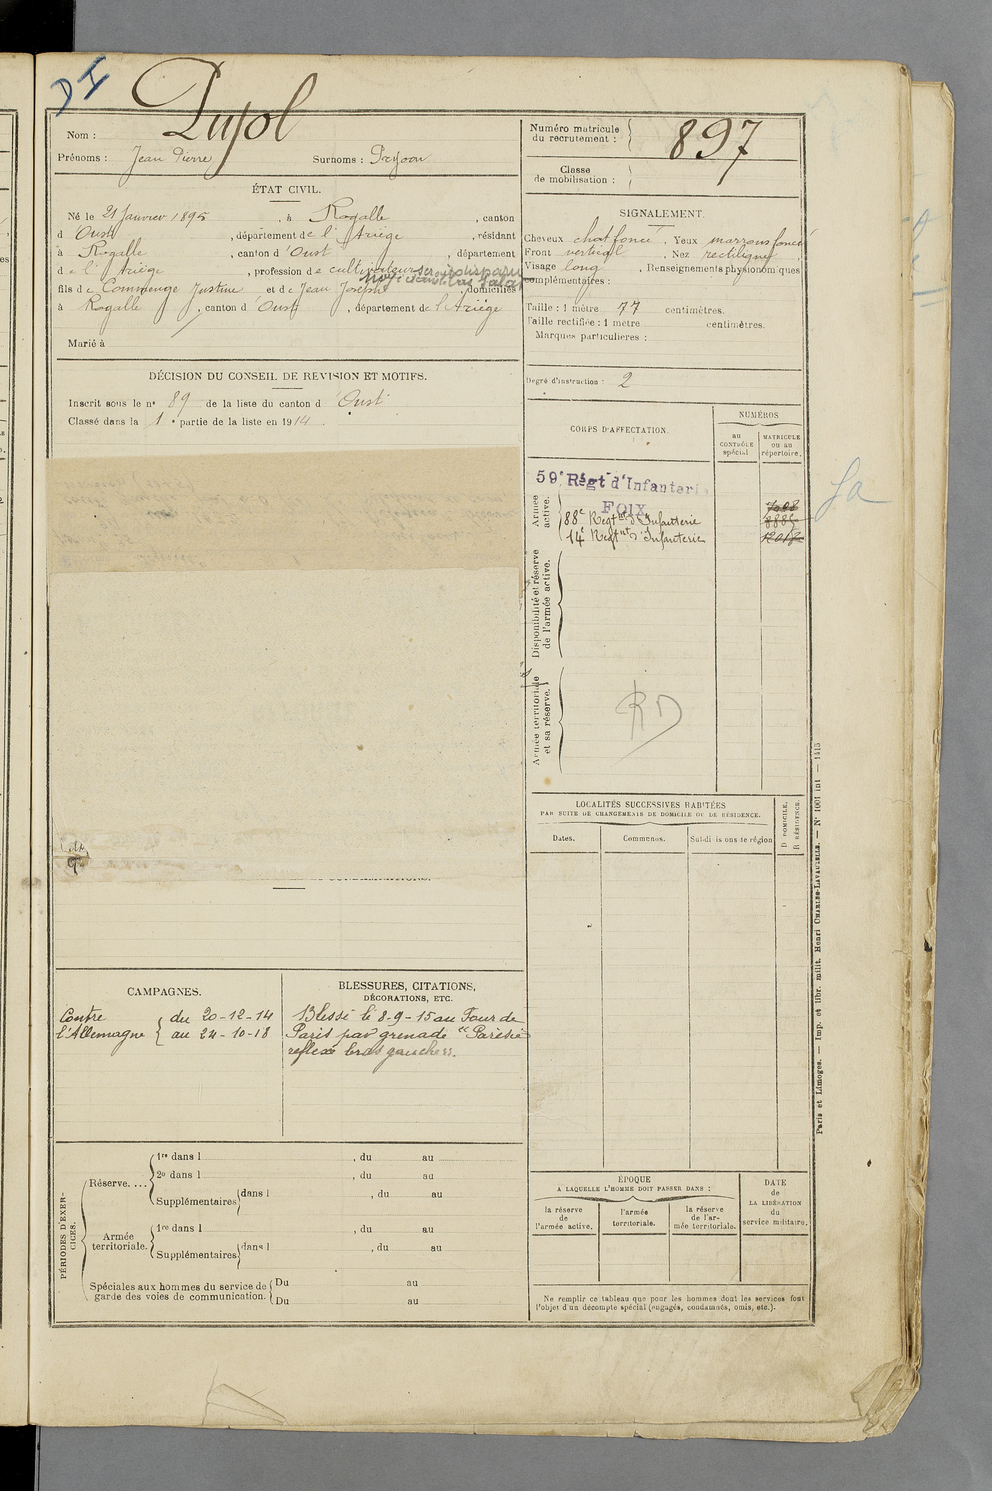 DI
Nom : Pujol
Prénoms : Jean Pierre Surnoms : Peyjoou
ÉTAT CIVIL.
Né le 21 Janvier 1895, à Rogalle, canton
d'Oust, département de l'Ariège, résidant
à Rogalle, canton d'Oust, département
de l'Ariège, profession de cultivateur
fils de Commenge Justine et de Jean Joseph, domiciliés
à Rogalle, canton d'Oust, département de l'Ariège
Marié à
DÉCISION DU CONSEIL DE REVISION ET MOTIFS.
Inscrit sous le n° 89 de la liste du canton d'Oust
Classé dans la 1e partie de la liste en 1914
CAMPAGNES.
Contre l'Allemagne { du 20-12-14
au 24-10-18
BLESSURES, CITATIONS,
DÉCORATIONS, ETC.
Blessé le 8-9-15 au Four de
Paris par grenade "Parésie
reflexe bras gauche".
PÉRIODES D'EXERCICES.
Réserve....
1re dans l , du au
2e dans l , du au
Supplémentaires dans l , du au
Armée territoriale.
1re dans l , du au
Supplémentaires dans l , du au
Spéciales aux hommes du service de
garde des voies de communication.
Du au
Du au
Numéro matricule
du recrutement : 897
Classe
de mobilisation :
SIGNALEMENT.
Cheveux chat foncé. Yeux marrons foncé
Front vertical, Nez rectiligne
Visage long, Renseignements physionomiques
complémentaires :
Taille : 1 mètre 77 centimètres.
Taille rectifiée : 1 mètre centimètres.
Marques particulières :
Degré d'instruction : 2
CORPS D'AFFECTATION.
NUMÉROS
au
CONTRÔLE
spécial
MATRICULE
ou au
répertoire.
Armée
active.
59e Régt d'Infanterie
FOIX
88e Régt d'Infanterie
14e Régt d'Infanterie
Disponibilité et réserve
de l'armée active.
Armée territoriale
et sa réserve.
RD
LOCALITÉS SUCCESSIVES HABITÉES
PAR SUITE DE CHANGEMENTS DE DOMICILE OU DE RÉSIDENCE.
Dates.
Communes.
Subdivisions de région
D DOMICILE.
R RÉSIDENCE.
ÉPOQUE
A LAQUELLE L'HOMME DOIT PASSER DANS :
la réserve
de
l'armée active.
l'armée
territoriale.
la réserve
de l'ar-
mée territoriale.
DATE
de
LA LIBÉRATION
du
service militaire.
Ne remplir ce tableau que pour les hommes dont les services font
l'objet d'un décompte spécial (engagés, condamnés, omis, etc.).
Paris et Limoges. — Imp. et libr. milit. Henri CHARLES-LAVAUZELLE. — N° 1001 int — 1415